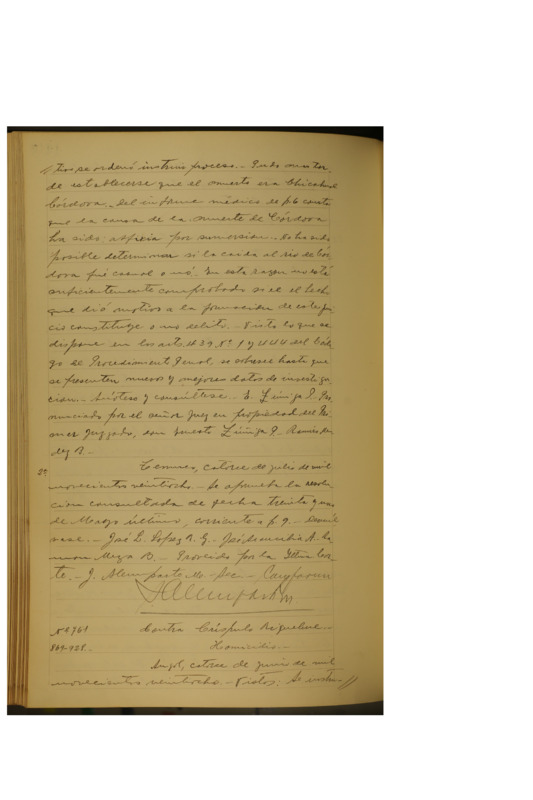 // tivo se ordenó instruir proceso.- Pudo
de establecerse que el muerto era
Córdova.- Del informe médico de f.6 consta
que la causa de la muerte de Córdova
ha sido asfixia por sumersión.- No ha sido
posible determinar si la caída al río de Cór
dova fué casual o nó.- En esta razon no está
suficientemente comprobado si el hecho
que dió motivo a la formacion de este jui
cio constituye o no delito.- Visto lo que se
dispone en los arts. 439 Nº 1 y 444 del Códi
go de Procedimiento Penal, se sobresee hasta que
se presenten nuevos y mejores datos de investiga
cion.- Anótese y consúltese.- E. Zúñiga P. Pro
nunciado por el señor Juez en propiedad del Pri
mer Juzgado, don Ernesto Zúñiga P.- Ramírez
R.-
2ª
Temuco, catorce de julio de mil
novecientos veintiocho.- Se aprueba la resolu
cion consultada de fecha treinta y uno
de Mayo último, corriente a f. 9.- Devuél
vase.- José L. López R. G.- José A.- Ra
mon Meza B.- Proveido por la Iltma. Cor
te.- J. Alemparte M.- Sec.-
Nº 6761
Contra Céspulo Riquelme.-
869-928.-
Homicidio.-
Angol, catorce de junio de mil
novecientos veintiocho.- Vistos: Se //